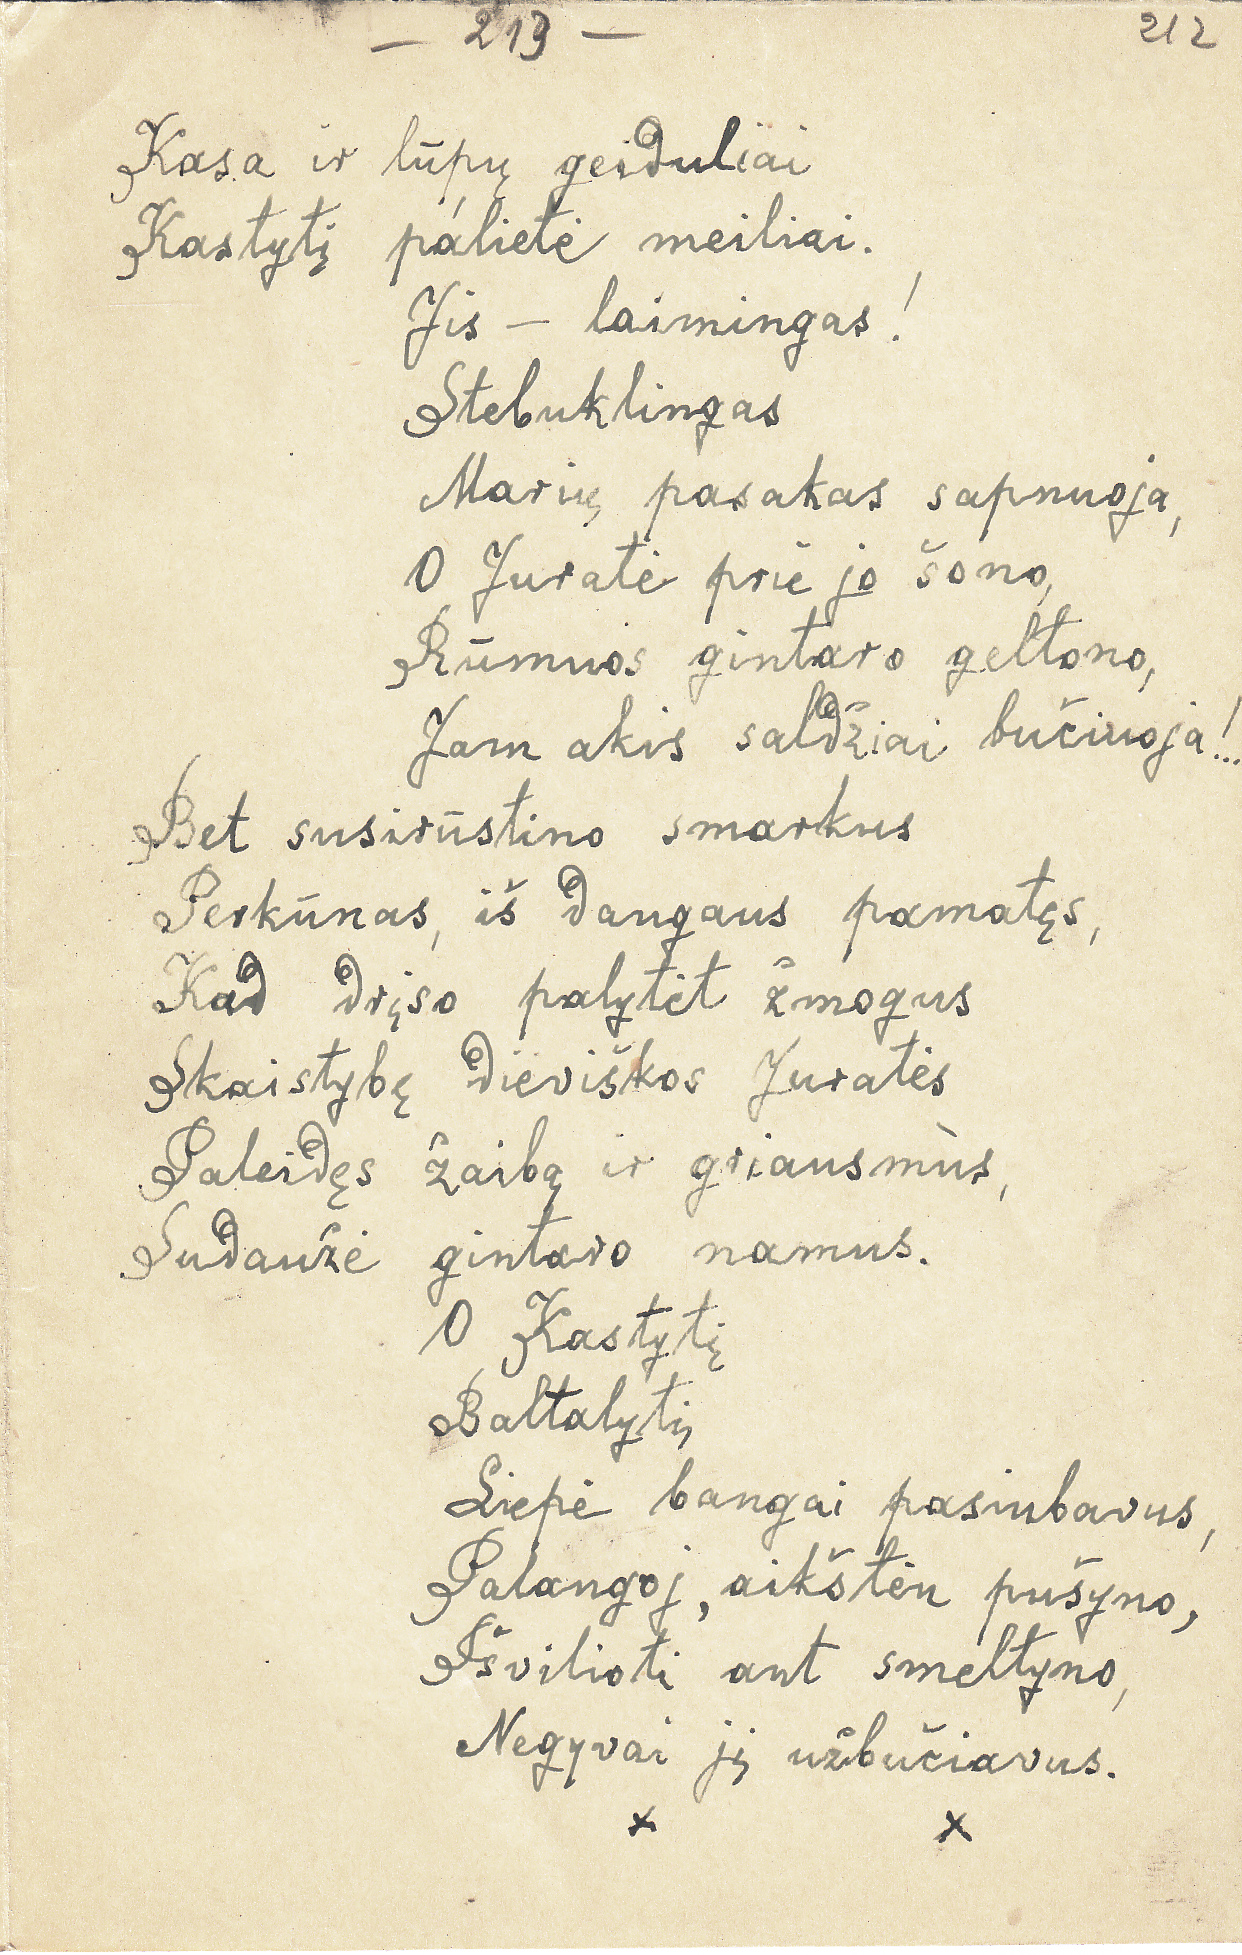 — 213 — 212
Kasa ir lūpų geiduliai
Kastytį palietė meiliai.
Jis — laimingas!
Stebuklingas
Marių pasakas sapnuoja,
O Juratė prie jo šono,
Rūmuos gintaro geltono,
Jam akis saldžiai bučiuoja!...
Bet susirūstino smarkus
Perkūnas, iš dangaus pamatęs,
Kad drįso palytėt žmogus
Skaistybę dieviškos Juratės
Paleidęs žaibą ir griausmùs,
Sudaužė gintaro namus.
O Kastytį
Baltalytį
Liepė bangai pasiubavus,
Palangoj, aikštėn pušyno,
Išvilioti ant smeltyno,
Negyvai jį užbučiavus.
x x